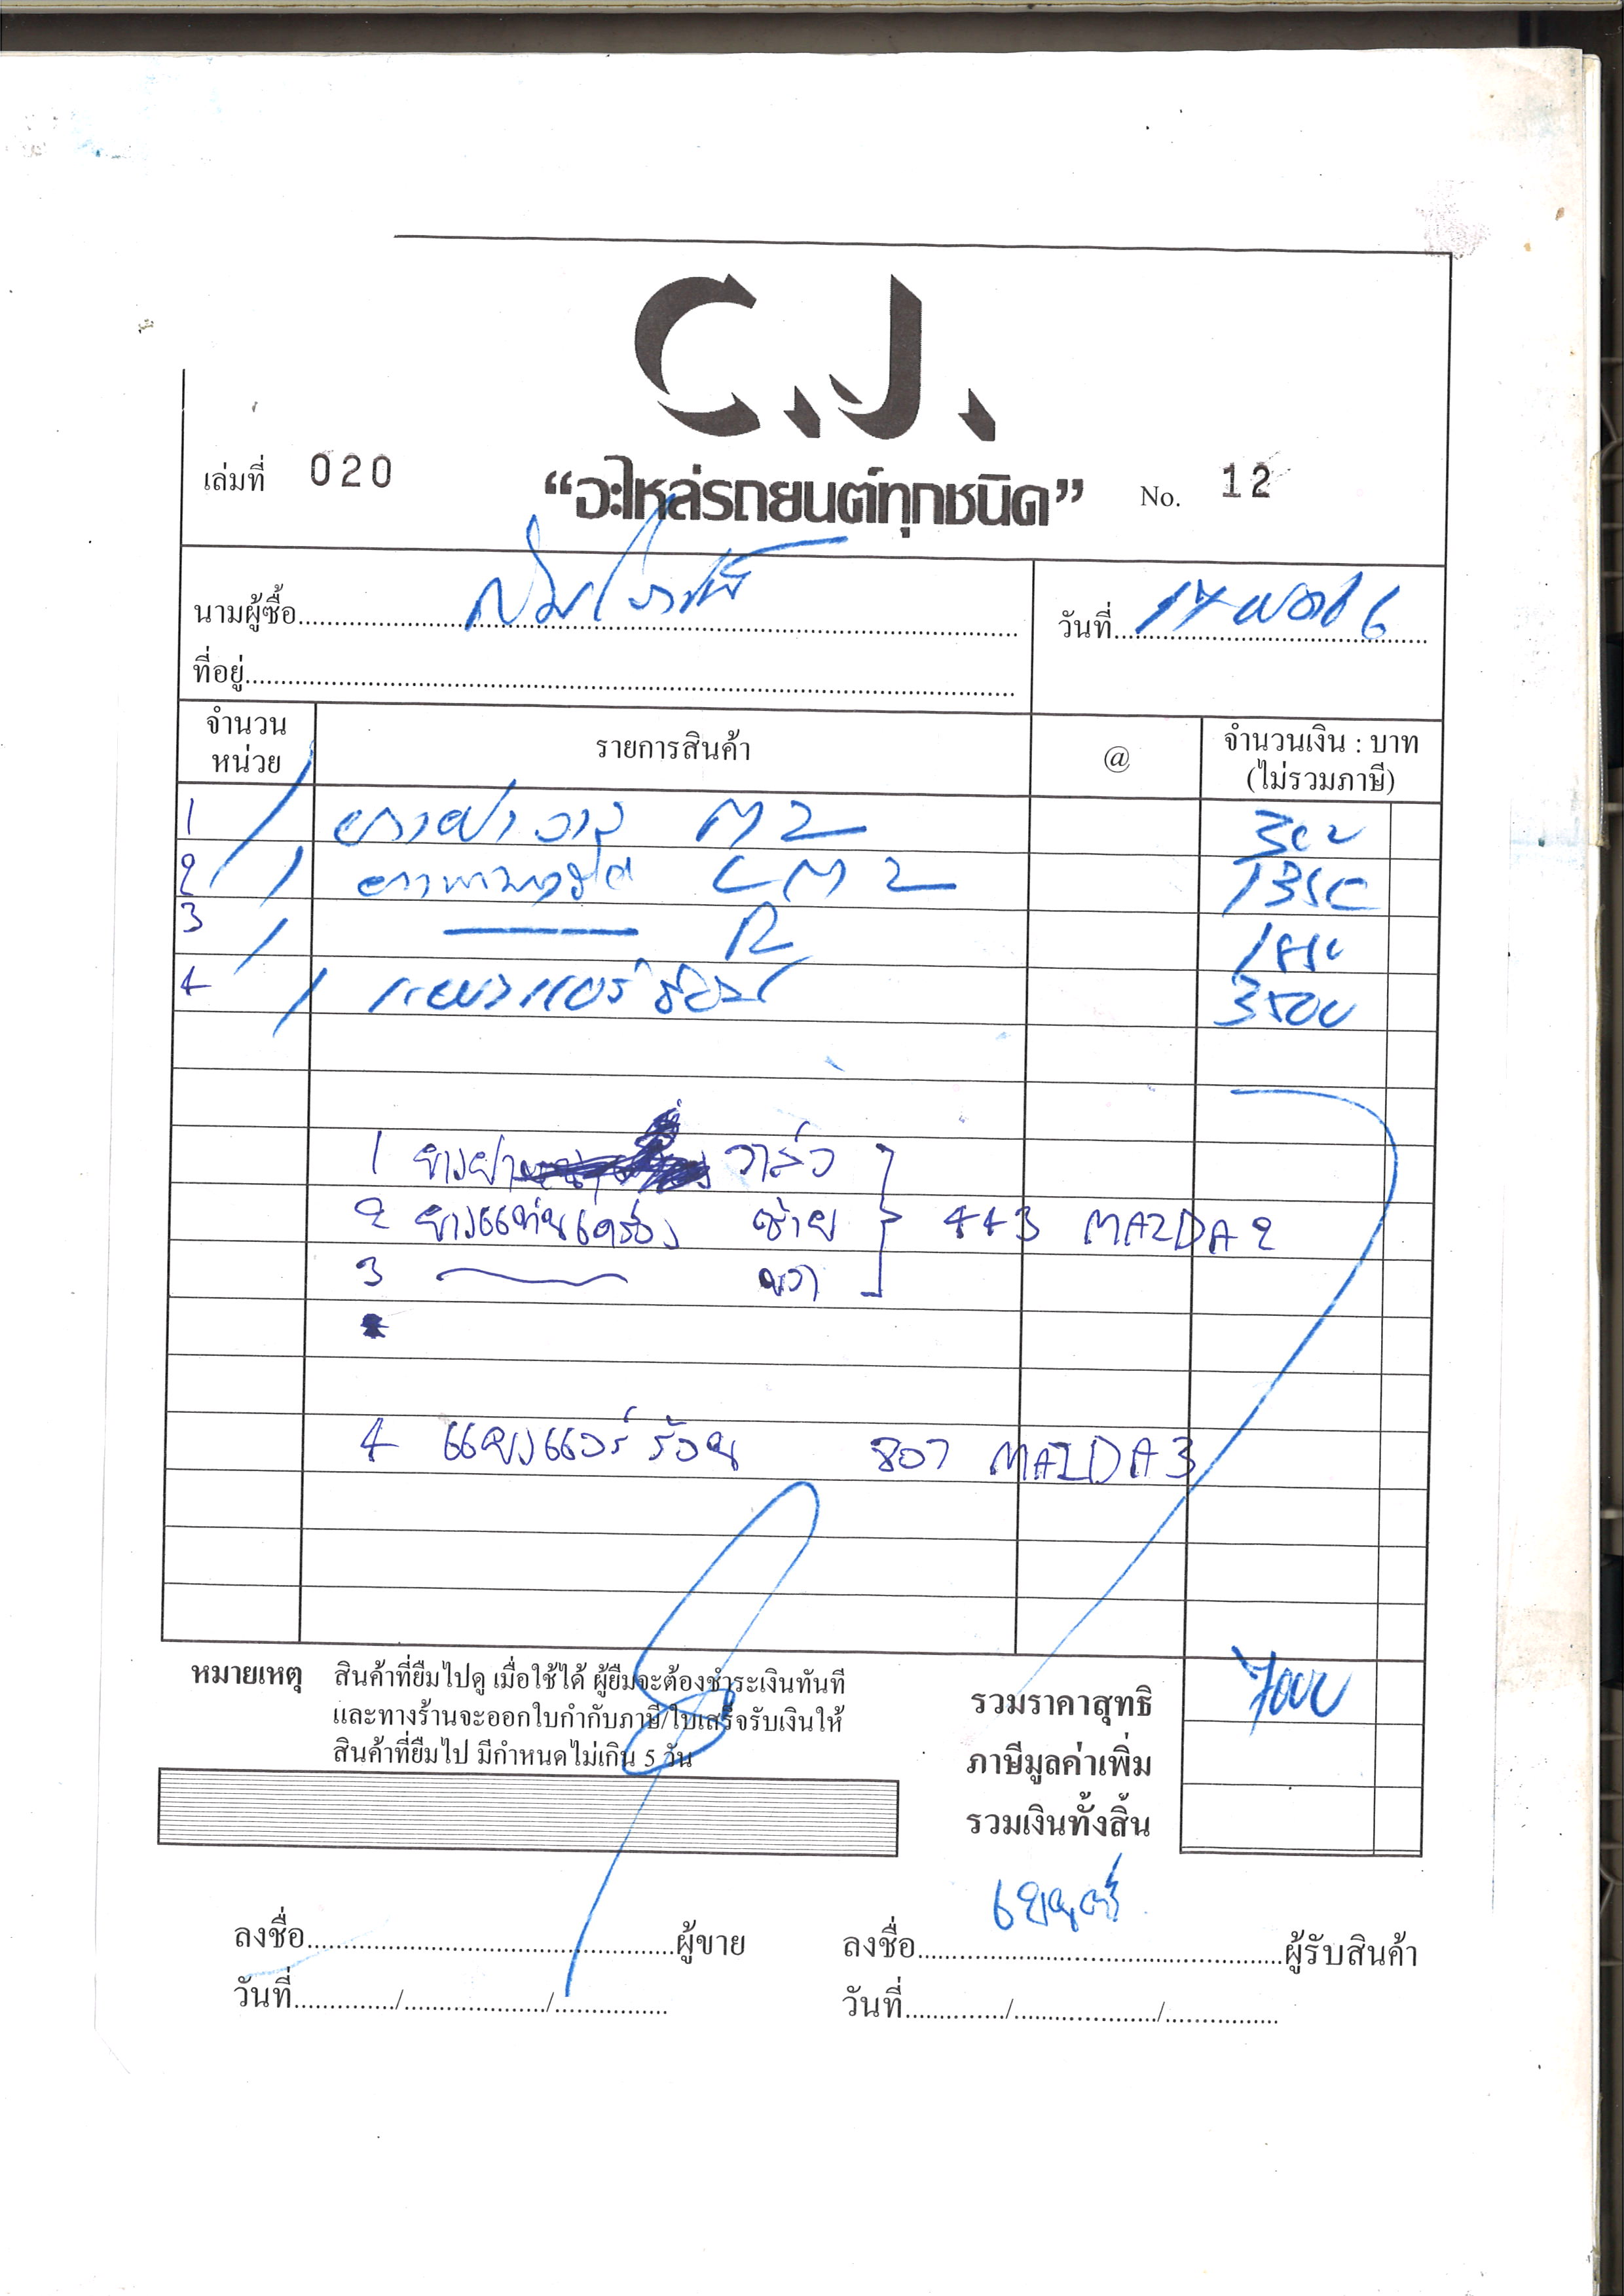 C.J.
เล่มที่ 020 “อะไหล่รถยนต์ทุกชนิด” No. 12
นามผู้ซื้อ
วันที่ 17
ที่อยู่
จำนวน
หน่วย
รายการสินค้า
@
จำนวนเงิน : บาท
(ไม่รวมภาษี)
1 / M2 300
2 / L M2 1350
3 / R 1850
4 / แผงแอร์ร้อน 3500
1 ยางฝา วาล์ว
2 ยางแท่นเครื่อง ซ้าย } 443 MAZDA 2
3 ขวา
4 แผงแอร์ ร้อน 807 MAZDA 3
หมายเหตุ สินค้าที่ยืมไปดู เมื่อใช้ได้ ผู้ยืมจะต้องชำระเงินทันที
และทางร้านจะออกใบกำกับภาษี/ใบเสร็จรับเงินให้
สินค้าที่ยืมไป มีกำหนดไม่เกิน 5 วัน
รวมราคาสุทธิ 7000
ภาษีมูลค่าเพิ่ม
รวมเงินทั้งสิ้น
ลงชื่อ ผู้ขาย
ลงชื่อ ผู้รับสินค้า
วันที่ / /
วันที่ / /